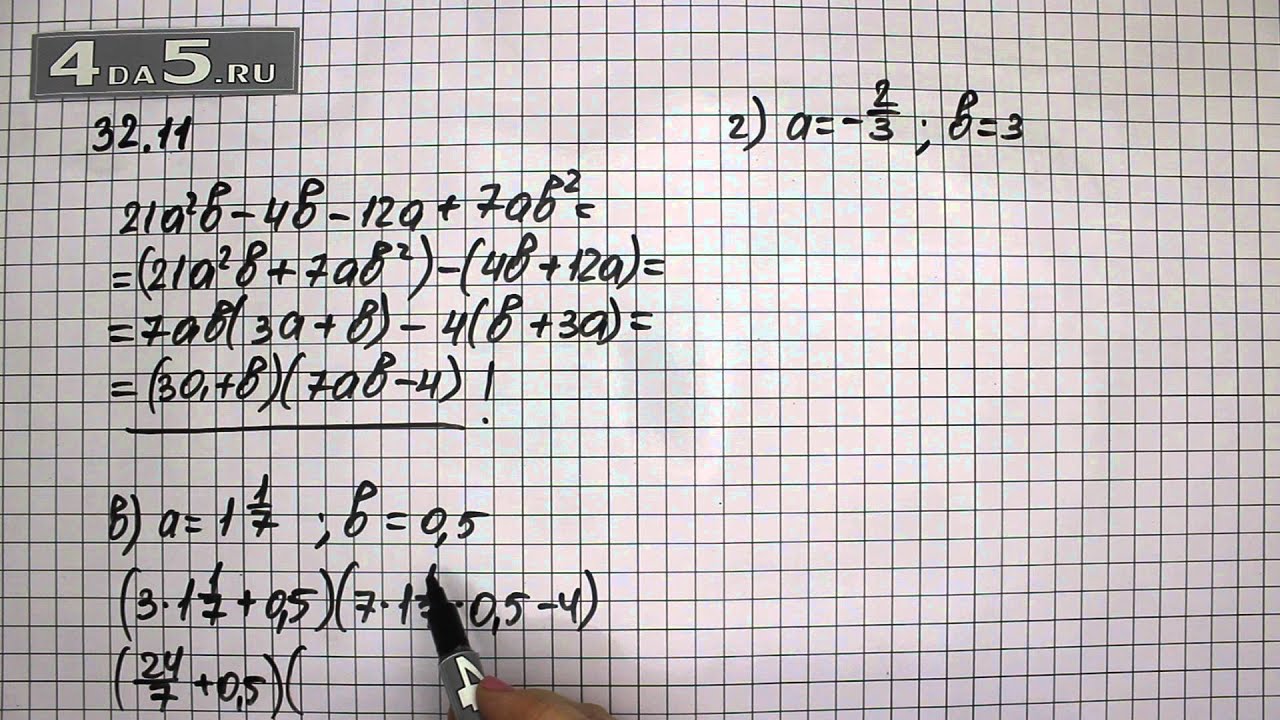 4DA5.RU
32.11
21a²b - 4b - 12a + 7ab² =
= (21a²b + 7ab²) - (4b + 12a) =
= 7ab(3a + b) - 4(b + 3a) =
= (3a + b)(7ab - 4) !
в) a = 1 1/7 ; b = 0,5
(3 · 1 1/7 + 0,5)(7 · 1 1/7 · 0,5 - 4)
(24/7 + 0,5)(
г) a = - 2/3 ; b = 3